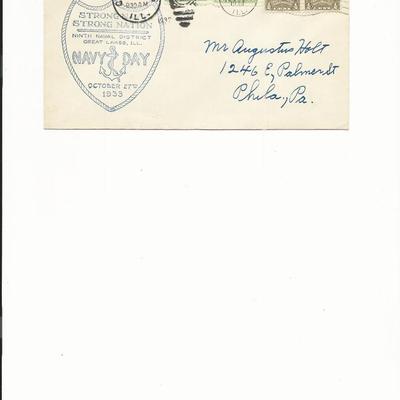 STRONG
STRONG NATION
NINTH NAVAL DISTRICT
GREAT LAKES, ILL.
NAVY DAY
OCTOBER 27TH
1933
ILL.
930AM
ILL.
Mr Augustus Holt
1246 E, Palmer St
Phila, Pa.